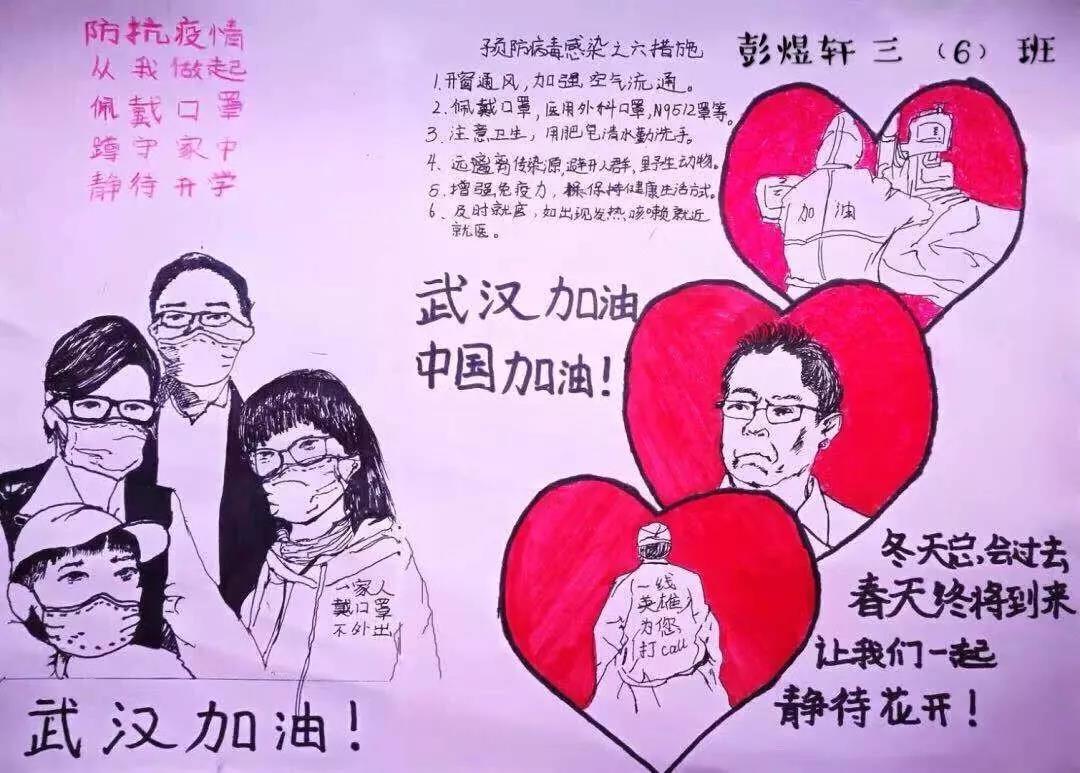 防抗疫情
从我做起
佩戴口罩
蹲守家中
静待开学
预防病毒感染之六措施
1.开窗通风,加强空气流通。
2.佩戴口罩,医用外科口罩,N95口罩等。
3.注意卫生,用肥皂清水勤洗手。
4.远离传染源,避开人群,野生动物。
5.增强免疫力,保持健康生活方式。
6.及时就医,如出现发热,咳嗽就近
就医。
彭煜轩三(6)班
加油
武汉加油
中国加油!
一家人
戴口罩
不外出
武汉加油!
一线
英雄
为您
打call
冬天总会过去
春天终将到来
让我们一起
静待花开!